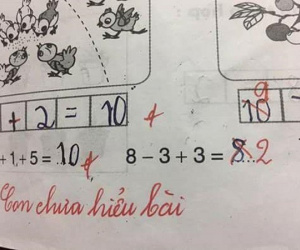 + 2 = 10 9 10
+ 1, + 5 = 10 8 - 3 + 3 = 8 2
Con chưa hiểu bài